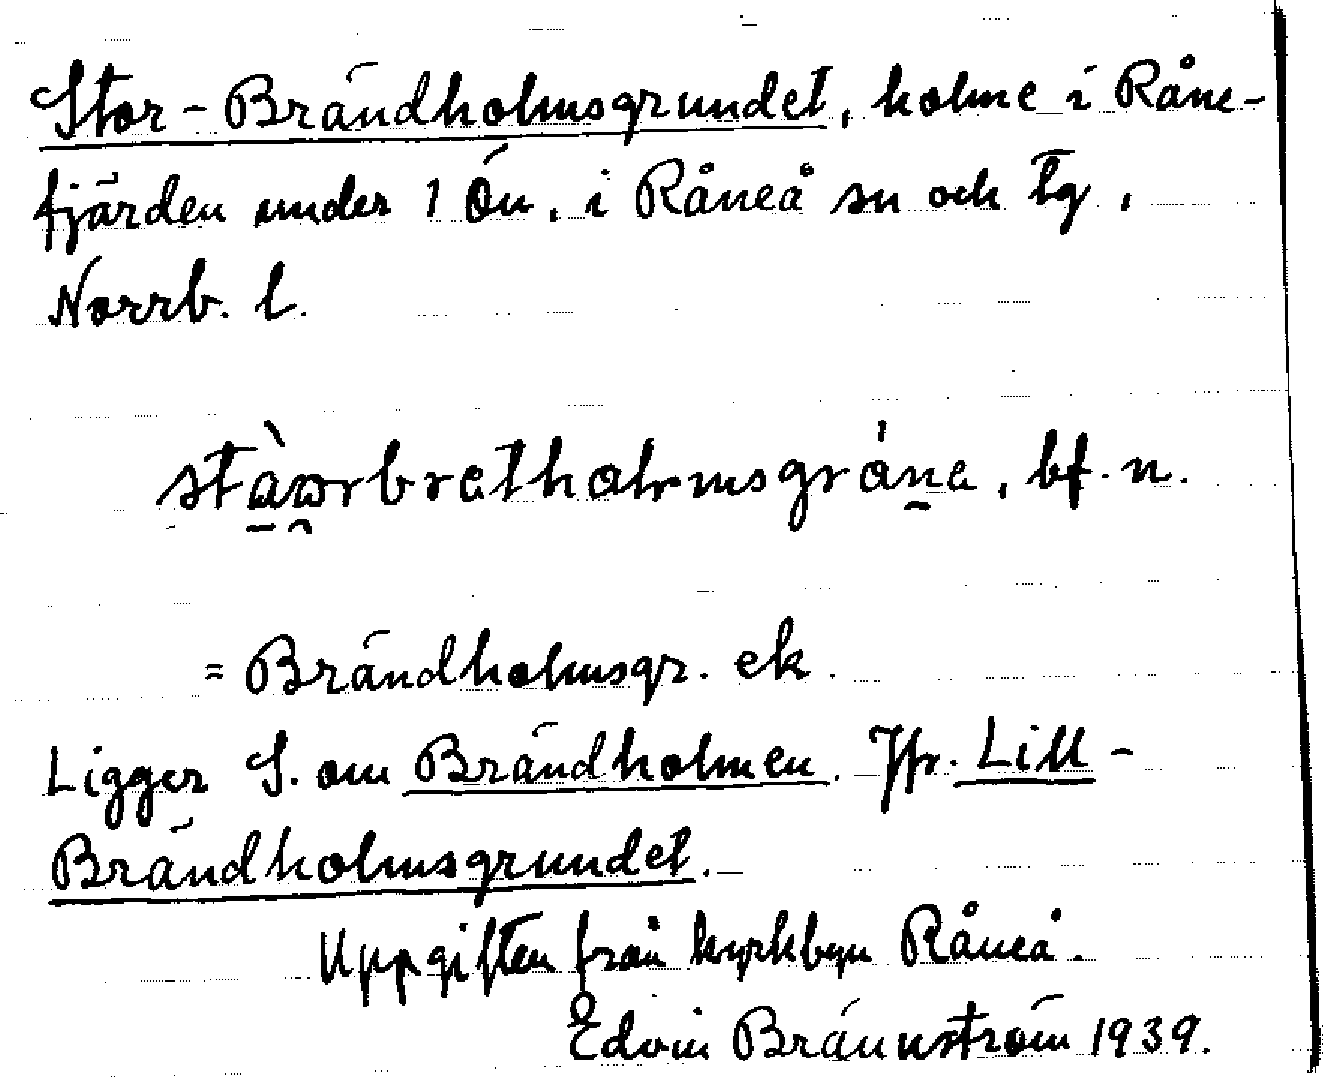 Stor-Brändholmsgrundet, holme i Råne-
fjärden under 1 Ön, i Råneå sn och tg,
Norrb. l.
stàərbretholmsgróne, bf. n.
= Brändholmsgr. ek.
Ligger S. om Brändholmen. Jfr. Lill-
Brändholmsgrundet.
Uppgiften från kyrkbyn Råneå.
Edvin Brännström 1939.